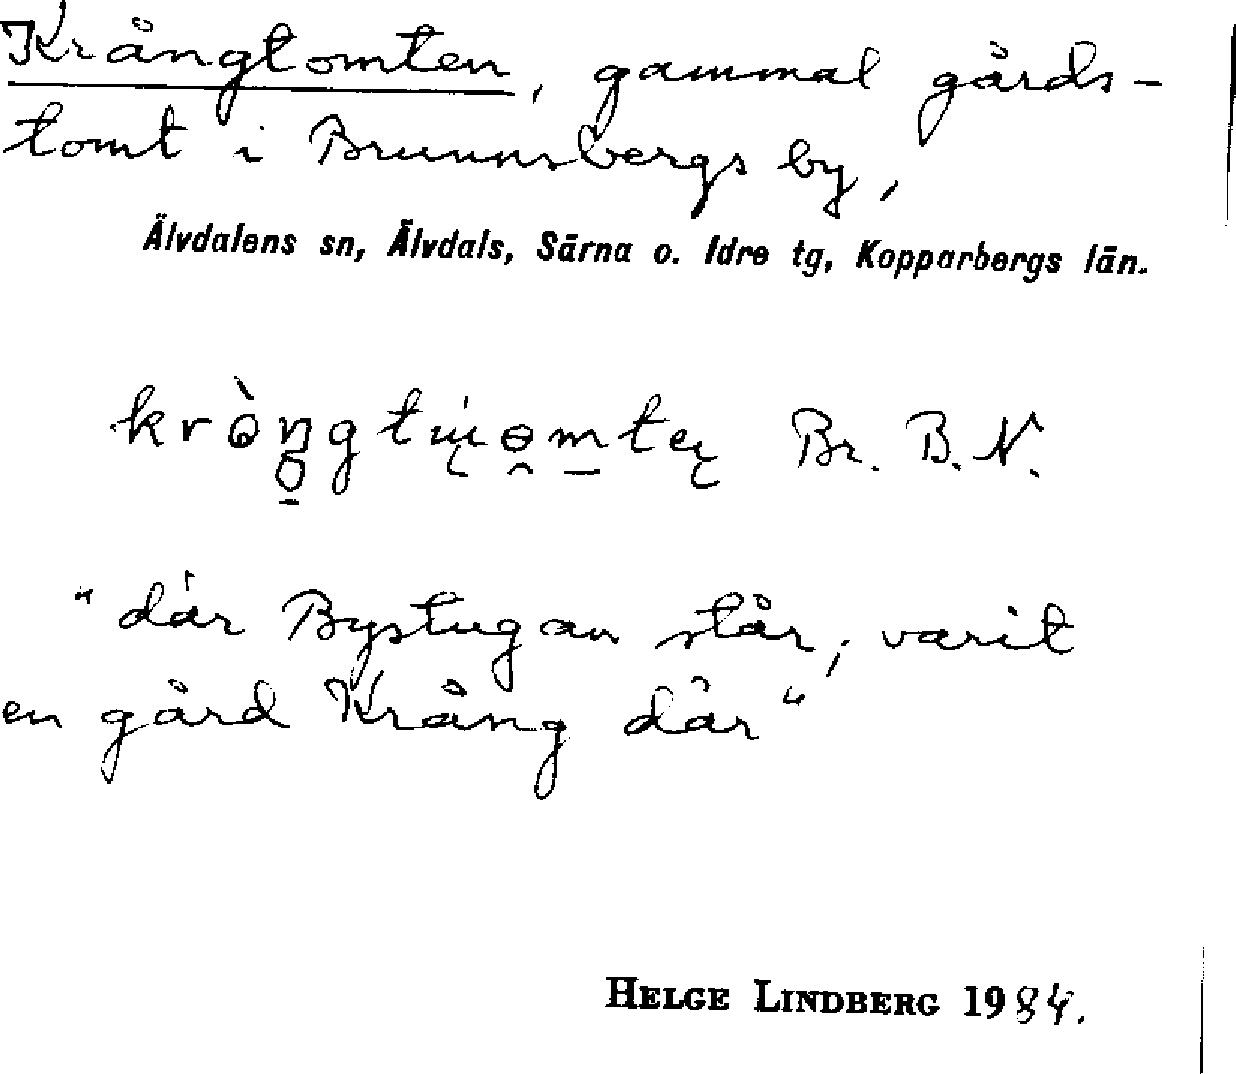 Krångtomten, gammal gårds-
tomt i Brunnsbergs by,
Älvdalens sn, Älvdals, Särna o. Idre tg, Kopparbergs län.
Br. B. N.
"där Bystugan står, varit
en gård Krång där"
HELGE LINDBERG 1984.